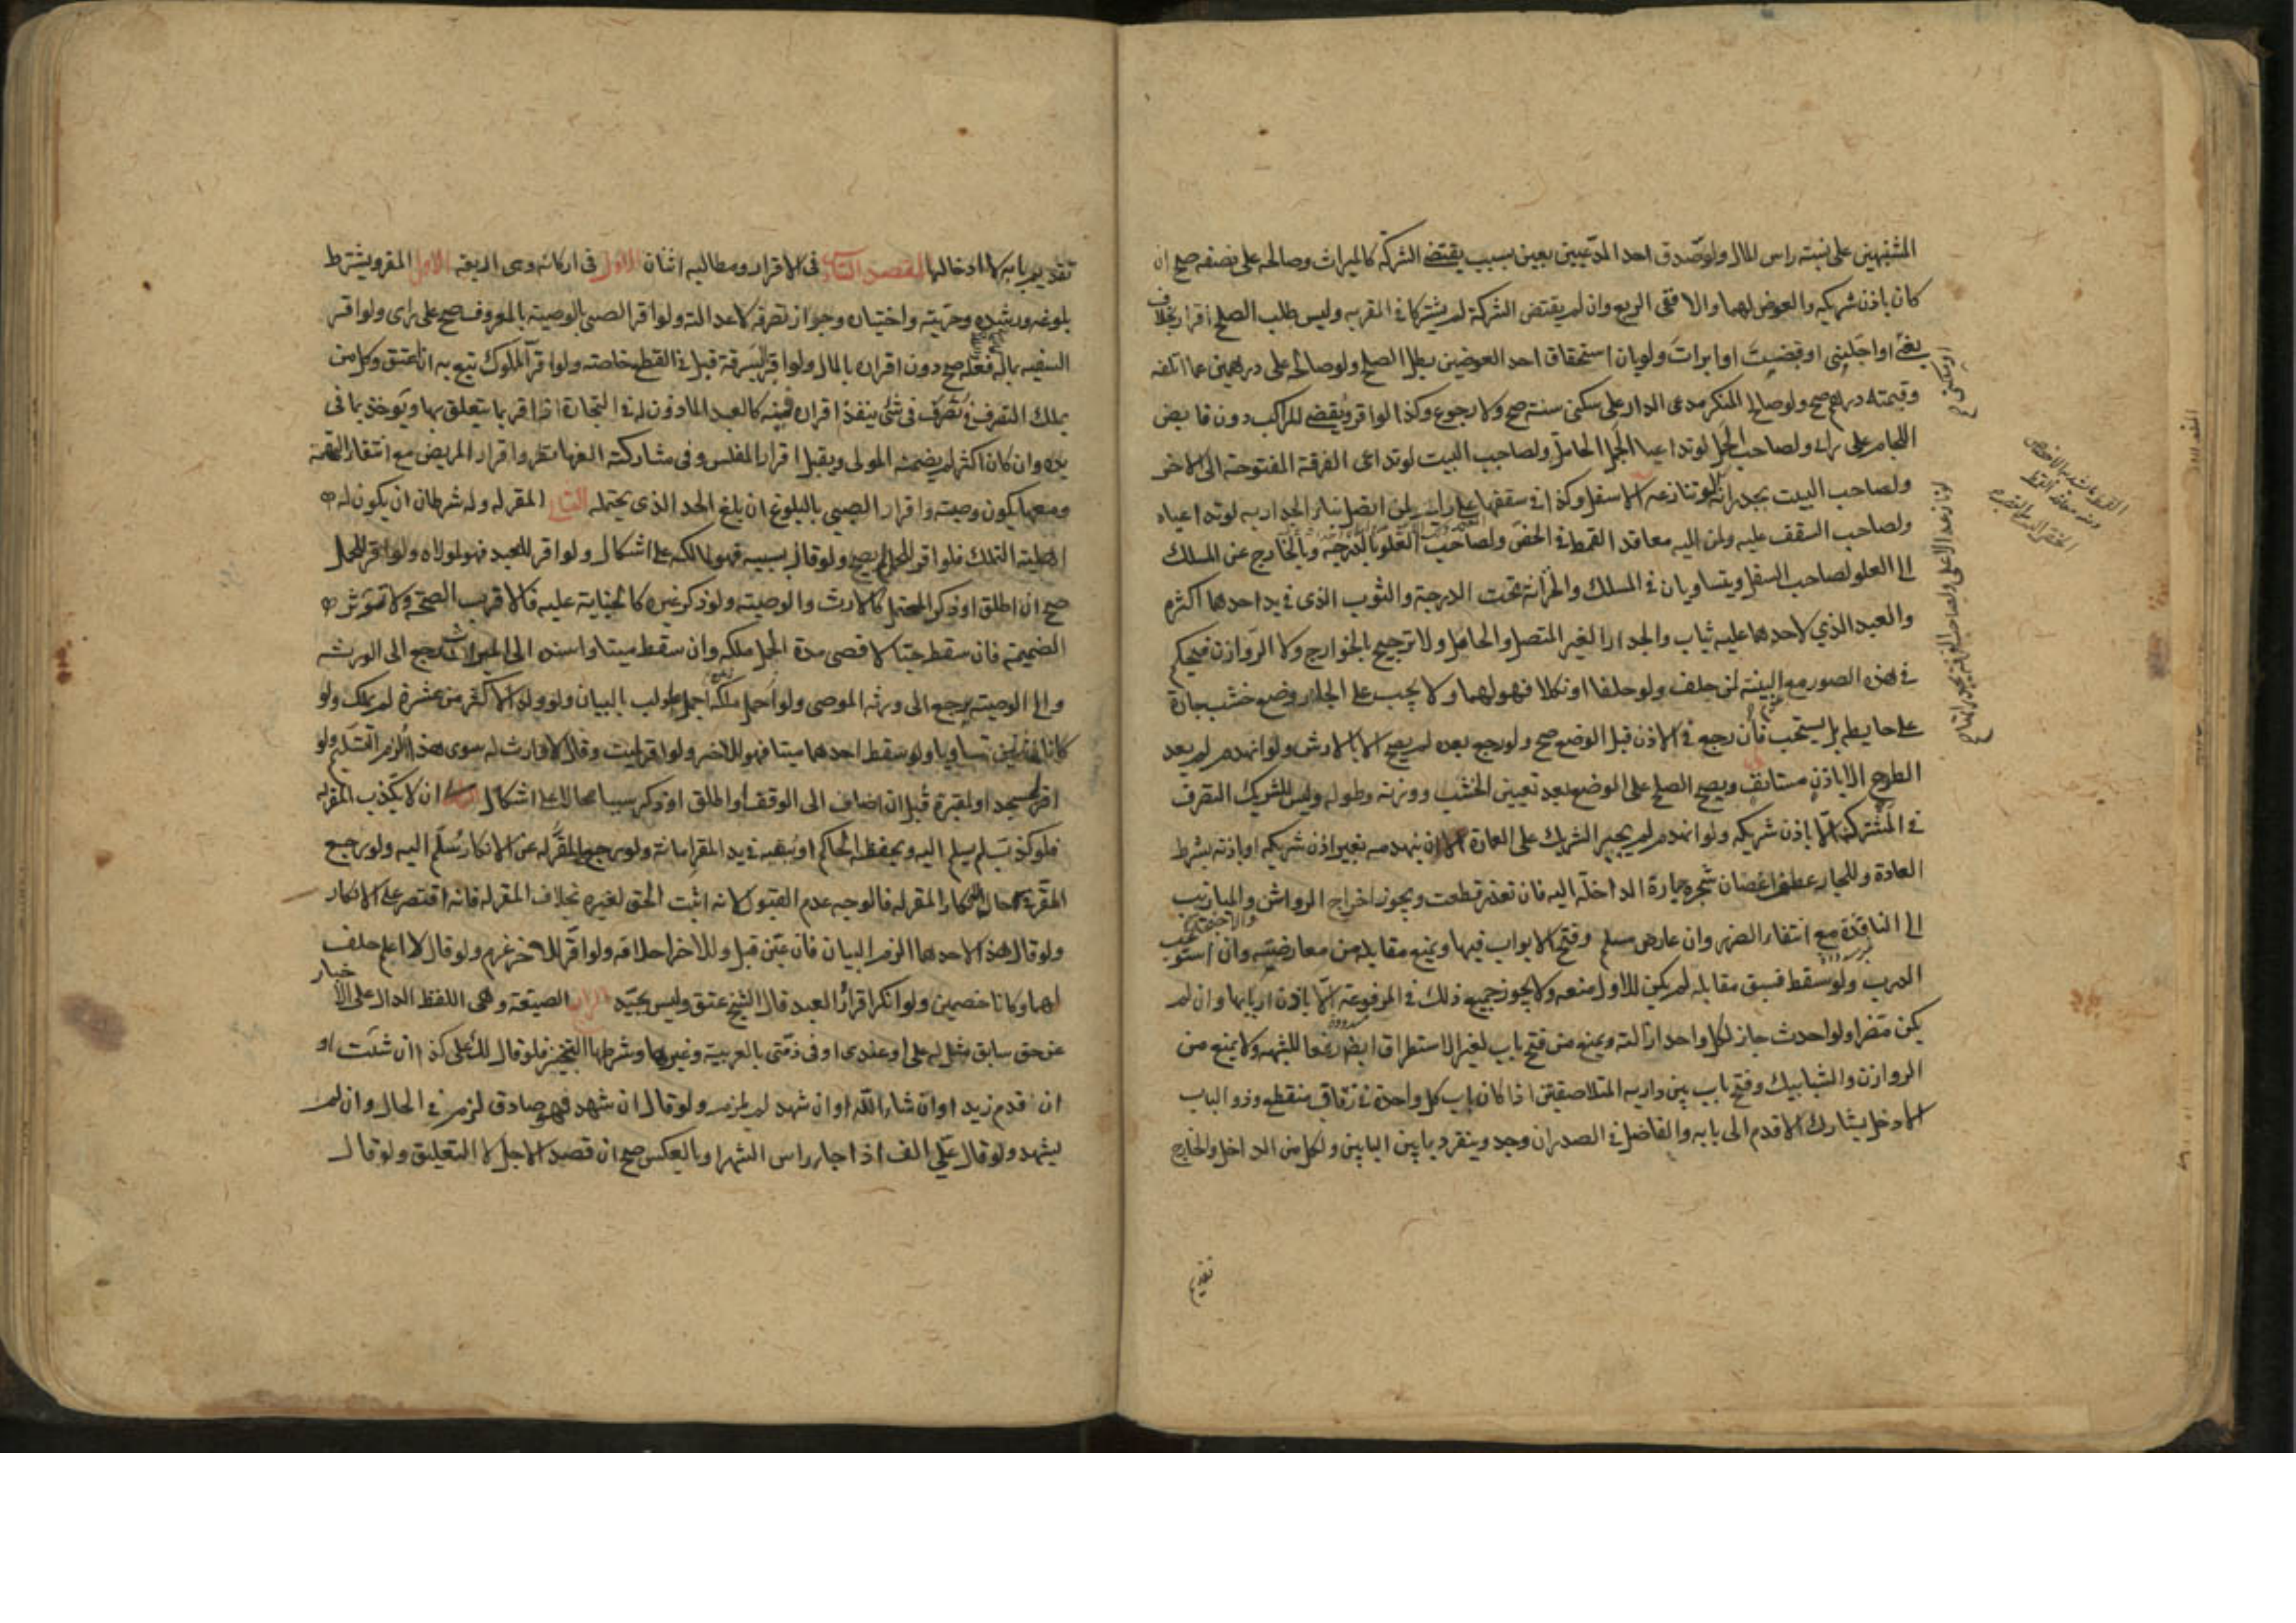 المشتبهين على نسبة راس المال ولو صدق احد المدعيين بعين بسبب يقتضى الشركة كالميراث وصالحه على نصفه صح ان
كان باذن شريكه والعوض لهما والا ففى الربع وان لم يقتض الشركة لم يشتركا فى المقر به وليس طلب الصلح اقرارا بخلاف
بعنى او اجلنى او قضيت او ابرات ولو بان استحقاق احد العوضين بطل الصلح ولو صالح على درهمين عما اتلفه
وقيمته درهم صح ولو صالح المنكر مدعى الدار على سكنى سنة صح ولا رجوع وكذا لو اقر ويقضى للراكب دون قابض
اللجام على راى ولصاحب الحمل لو تداعيا الجمل الحامل ولصاحب البيت لو تداعى الغرفة المفتوحة الى الاخر
ولصاحب البيت بجدرانه لو تنازعه الاسفل وكذا فى سقفها على راى ولمن اتصل بناء الجدار به لو تداعياه
ولصاحب السقف عليه ولمن اليه معاقد القمط فى الخص ولصاحب العلو بالدرجة وبالخارج عن المسلك
الى العلو لصاحب السفل ويتساويان فى المسلك والخزانة تحت الدرجة والثوب الذى فى يد احدهما اكثره
والعبد الذي لاحدهما عليه ثياب والجدار الغير المتصل والحامل ولا ترجيح بالخوارج ولا الروازن فيحكم
فى هذه الصور مع البينة لمن حلف ولو حلفا او نكلا فهو لهما ولا يجب على الجار وضع خشب جاره
على حايطه بل يستحب فان رجع فى الاذن قبل الوضع صح ولو رجع بعده لم يصح الا بالارش ولو انهدم لم يعد
الطرح الا باذن مستانف ويصح الصلح على الوضع بعد تعيين الخشب ووزنه وطوله وليس للشريك التصرف
فى المشترك الا باذن شريكه ولو انهدم لم يجبر الشريك على العمارة الا ان يهدمه بغير اذن شريكه او باذنه بشرط
العادة وللجار عطف اغصان شجرة جاره الداخلة اليه فان تعذر قطعت ويجوز اخراج الرواشن والميازيب
الى النافذة مع انتفاء الضرر وان عارض مسلم وفتح الابواب فيها ويمنع مقابله من معارضته وان استوعب
الدرب ولو سقط فسبق مقابله لم يكن للاول منعه ولا يجوز جميع ذلك فى المرفوعة الا باذن اربابها وان لم
يكن مضرا ولو احدث جاز لكل واحد ازالته ويمنع من فتح باب لغير الاستطراق ايضا رفعا للشبهة ولا يمنع من
الروازن والشبابيك وفتح باب بين داريه المتلاصقتين اذا كان باب كل واحدة فى زقاق منقطع وذو الباب
الادخل يشارك الاقدم الى بابه والفاضل فى الصدر ان وجد وينفرد بما بين البابين ولكل من الداخل والخارج
تقديم
تقديم بابه لا ادخالها المقصد فى الاقرار ومطالبه اثنان الاول فى اركانه وهى اربعة الاول المقر ويشترط
بلوغه ورشده وحريته واختياره وجواز تصرفه لا عدالته ولو اقر الصبى بالوصية بالمعروف صح على راى ولو اقر
السفيه بماله فعله صح دون اقراره بالمال ولو اقر بسرقة قبل فى القطع خاصة ولو اقر المملوك تبع به ان اعتق وكل من
يملك التصرف فى شئ ينفذ اقراره فيه كالعبد الماذون له فى التجارة اذا اقر بما يتعلق بها ويوخذ بما فى
يده وان كان اكثر لم يضمنه المولى ويقبل اقرار المفلس وفى مشاركته الغرماء نظر واقرار المريض مع انتفاء التهمة
ومعها يكون وصية واقرار الصبى بالبلوغ ان بلغ الحد الذى يحتمله المقر له وله شرطان ان يكون له
اهلية التملك فلو اقر للحمار لم يصح ولو قال بسببه فهو لمالكه على اشكال ولو اقر للعبد فهو لمولاه ولو اقر للحمل
صح ان اطلق او ذكر المحتمل كالارث والوصية ولو ذكر غيره كالجناية عليه فالاقرب الصحة ولا تؤثر
الضميمة فان سقط حيا لاقصى مدة الحمل ملكه وان سقط ميتا واسنده الى الميراث رجع الى الورثة
والى الوصية يرجع الى ورثة الموصى ولو اجمل طولب بالبيان ولو ولد لاكثر من عشرة لم يملك ولو
كانا اثنين تساويا ولو سقط احدهما ميتا فهو للاخر ولو اقر لميت وقال لا وارث له سوى هذا الزم التسليم ولو
اقر لمسجد او لمقبرة قبل ان اضاف الى الوقف او اطلق او ذكر سببا محالا على اشكال ان لا يكذب المقر له
فلو كذب لم يسلم اليه ويحفظه الحاكم او يبقيه فى يد المقر امانة ولو رجع المقر له عن الانكار سلم اليه ولو رجع
المقر فى حال انكار المقر له فالوجه عدم القبول لانه اثبت الحق لغيره بخلاف المقر له فانه اقتصر على الانكار
ولو قال هذا لاحدهما الزم البيان فان عين قبل وللاخر احلافه ولو اقر للاخر غرم ولو قال لا اعلم حلف
لهما وكانا خصمين ولو انكر اقرار العبد قال الشيخ عتق وليس بجيد الصيغة وهى اللفظ الدال على الاخبار
عن حق سابق مثل له على او عندى او فى ذمتى بالعربية وغيرها وشرطها التنجيز فلو قال لك على كذا ان شئت او
ان قدم زيد او ان شاء الله او ان شهد لم يلزم ولو قال ان شهد فهو صادق لزم فى الحال وان لم
يشهد ولو قال على الف اذا جاء راس الشهر او بالعكس صح ان قصد الاجل لا التعليق ولو قال